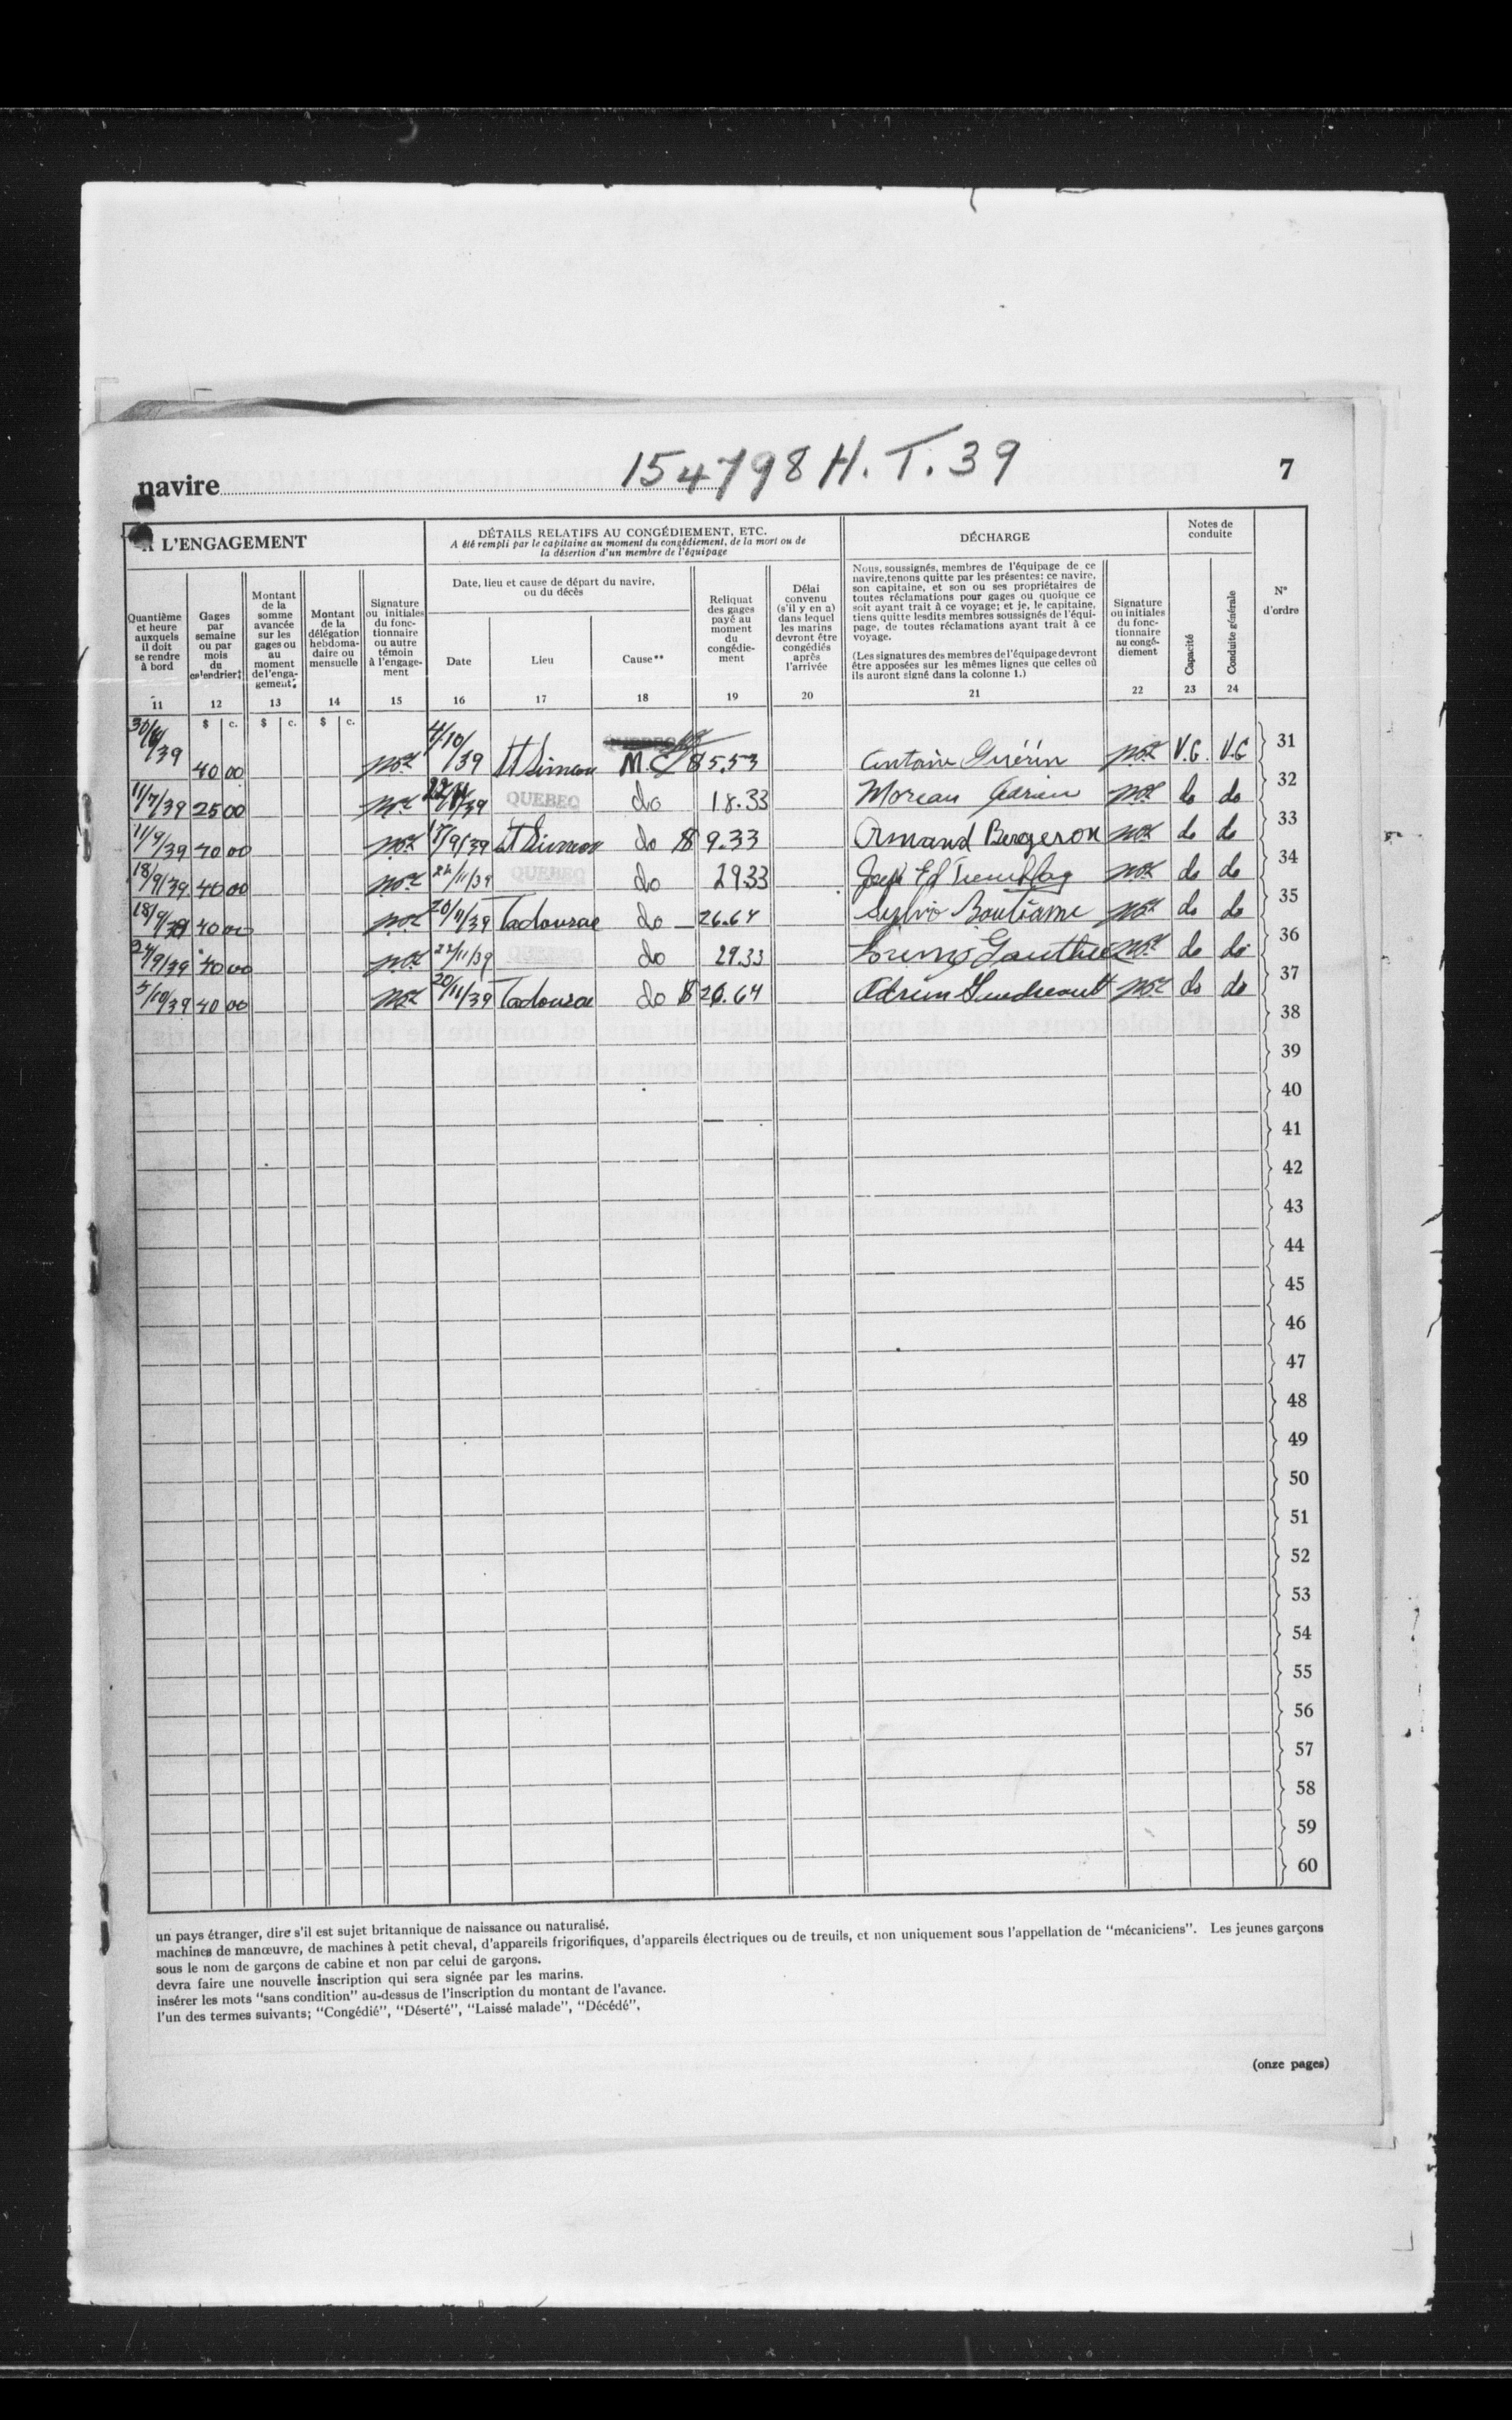 154798 H. T. 39
navire
7
A L'ENGAGEMENT
DÉTAILS RELATIFS AU CONGÉDIEMENT, ETC.
A été rempli par le capitaine au moment du congédiement, de la mort ou de
la désertion d'un membre de l'équipage
DÉCHARGE
Notes de
conduite
Quantième
et heure
auxquels
il doit
se rendre
à bord
Gages
par
semaine
ou par
mois
du
calendrier‡
Montant
de la
somme
avancée
sur les
gages ou
au
moment
de l'enga-
gement
Montant
de la
délégation
hebdoma-
daire ou
mensuelle
Signature
ou initiales
du fonc-
tionnaire
ou autre
témoin
à l'engage-
ment
Date, lieu et cause de départ du navire,
ou du décès
Date
Lieu
Cause**
Reliquat
des gages
payé au
moment
du
congédie-
ment
Délai
convenu
(s'il y en a)
dans lequel
les marins
devront être
congédiés
après
l'arrivée
Nous, soussignés, membres de l'équipage de ce
navire,tenons quitte par les présentes: ce navire,
son capitaine, et son ou ses propriétaires de
toutes réclamations pour gages ou quoique ce
soit ayant trait à ce voyage; et je, le capitaine,
tiens quitte lesdits membres soussignés de l'équi-
page, de toutes réclamations ayant trait à ce
voyage.
(Les signatures des membres de l'équipage devront
être apposées sur les mêmes lignes que celles où
ils auront signé dans la colonne 1.)
Signature
ou initiales
du fonc-
tionnaire
au congé-
diement
Capacité
Conduite générale
N°
d'ordre
11 12 13 14 15 16 17 18 19 20 21 22 23 24
$ c. $ c. $ c.
/39 40 00 4/10/39 St Simon M.C $ 5.53 Antoine Guérin V.G. V.G 31
11/7/39 25 00 QUEBEC do 18.33 Moreau Adrien do do 32
11/9/39 40 00 17/9/39 St Simon do $ 9.33 Armand Bergeron do do 33
18/9/39 40 00 22/11/39 QUEBEC do 29.33 Jos Ed Tremblay do do 34
18/9/39 40 00 20/11/39 Tadousac do 26.64 Sylvio Boulianne do do 35
24/9/39 40 00 22/11/39 QUEBEC do 29.33 Lorenzo Gauthier do do 36
5/10/39 40 00 20/11/39 Tadousac do $ 26.64 Adrien Gaudreault do do 37
38
39
40
41
42
43
44
45
46
47
48
49
50
51
52
53
54
55
56
57
58
59
60
un pays étranger, dire s'il est sujet britannique de naissance ou naturalisé.
machines de manœuvre, de machines à petit cheval, d'appareils frigorifiques, d'appareils électriques ou de treuils, et non uniquement sous l'appellation de "mécaniciens". Les jeunes garçons
sous le nom de garçons de cabine et non par celui de garçons.
devra faire une nouvelle inscription qui sera signée par les marins.
insérer les mots "sans condition" au-dessus de l'inscription du montant de l'avance.
l'un des termes suivants; "Congédié", "Déserté", "Laissé malade", "Décédé",
(onze pages)